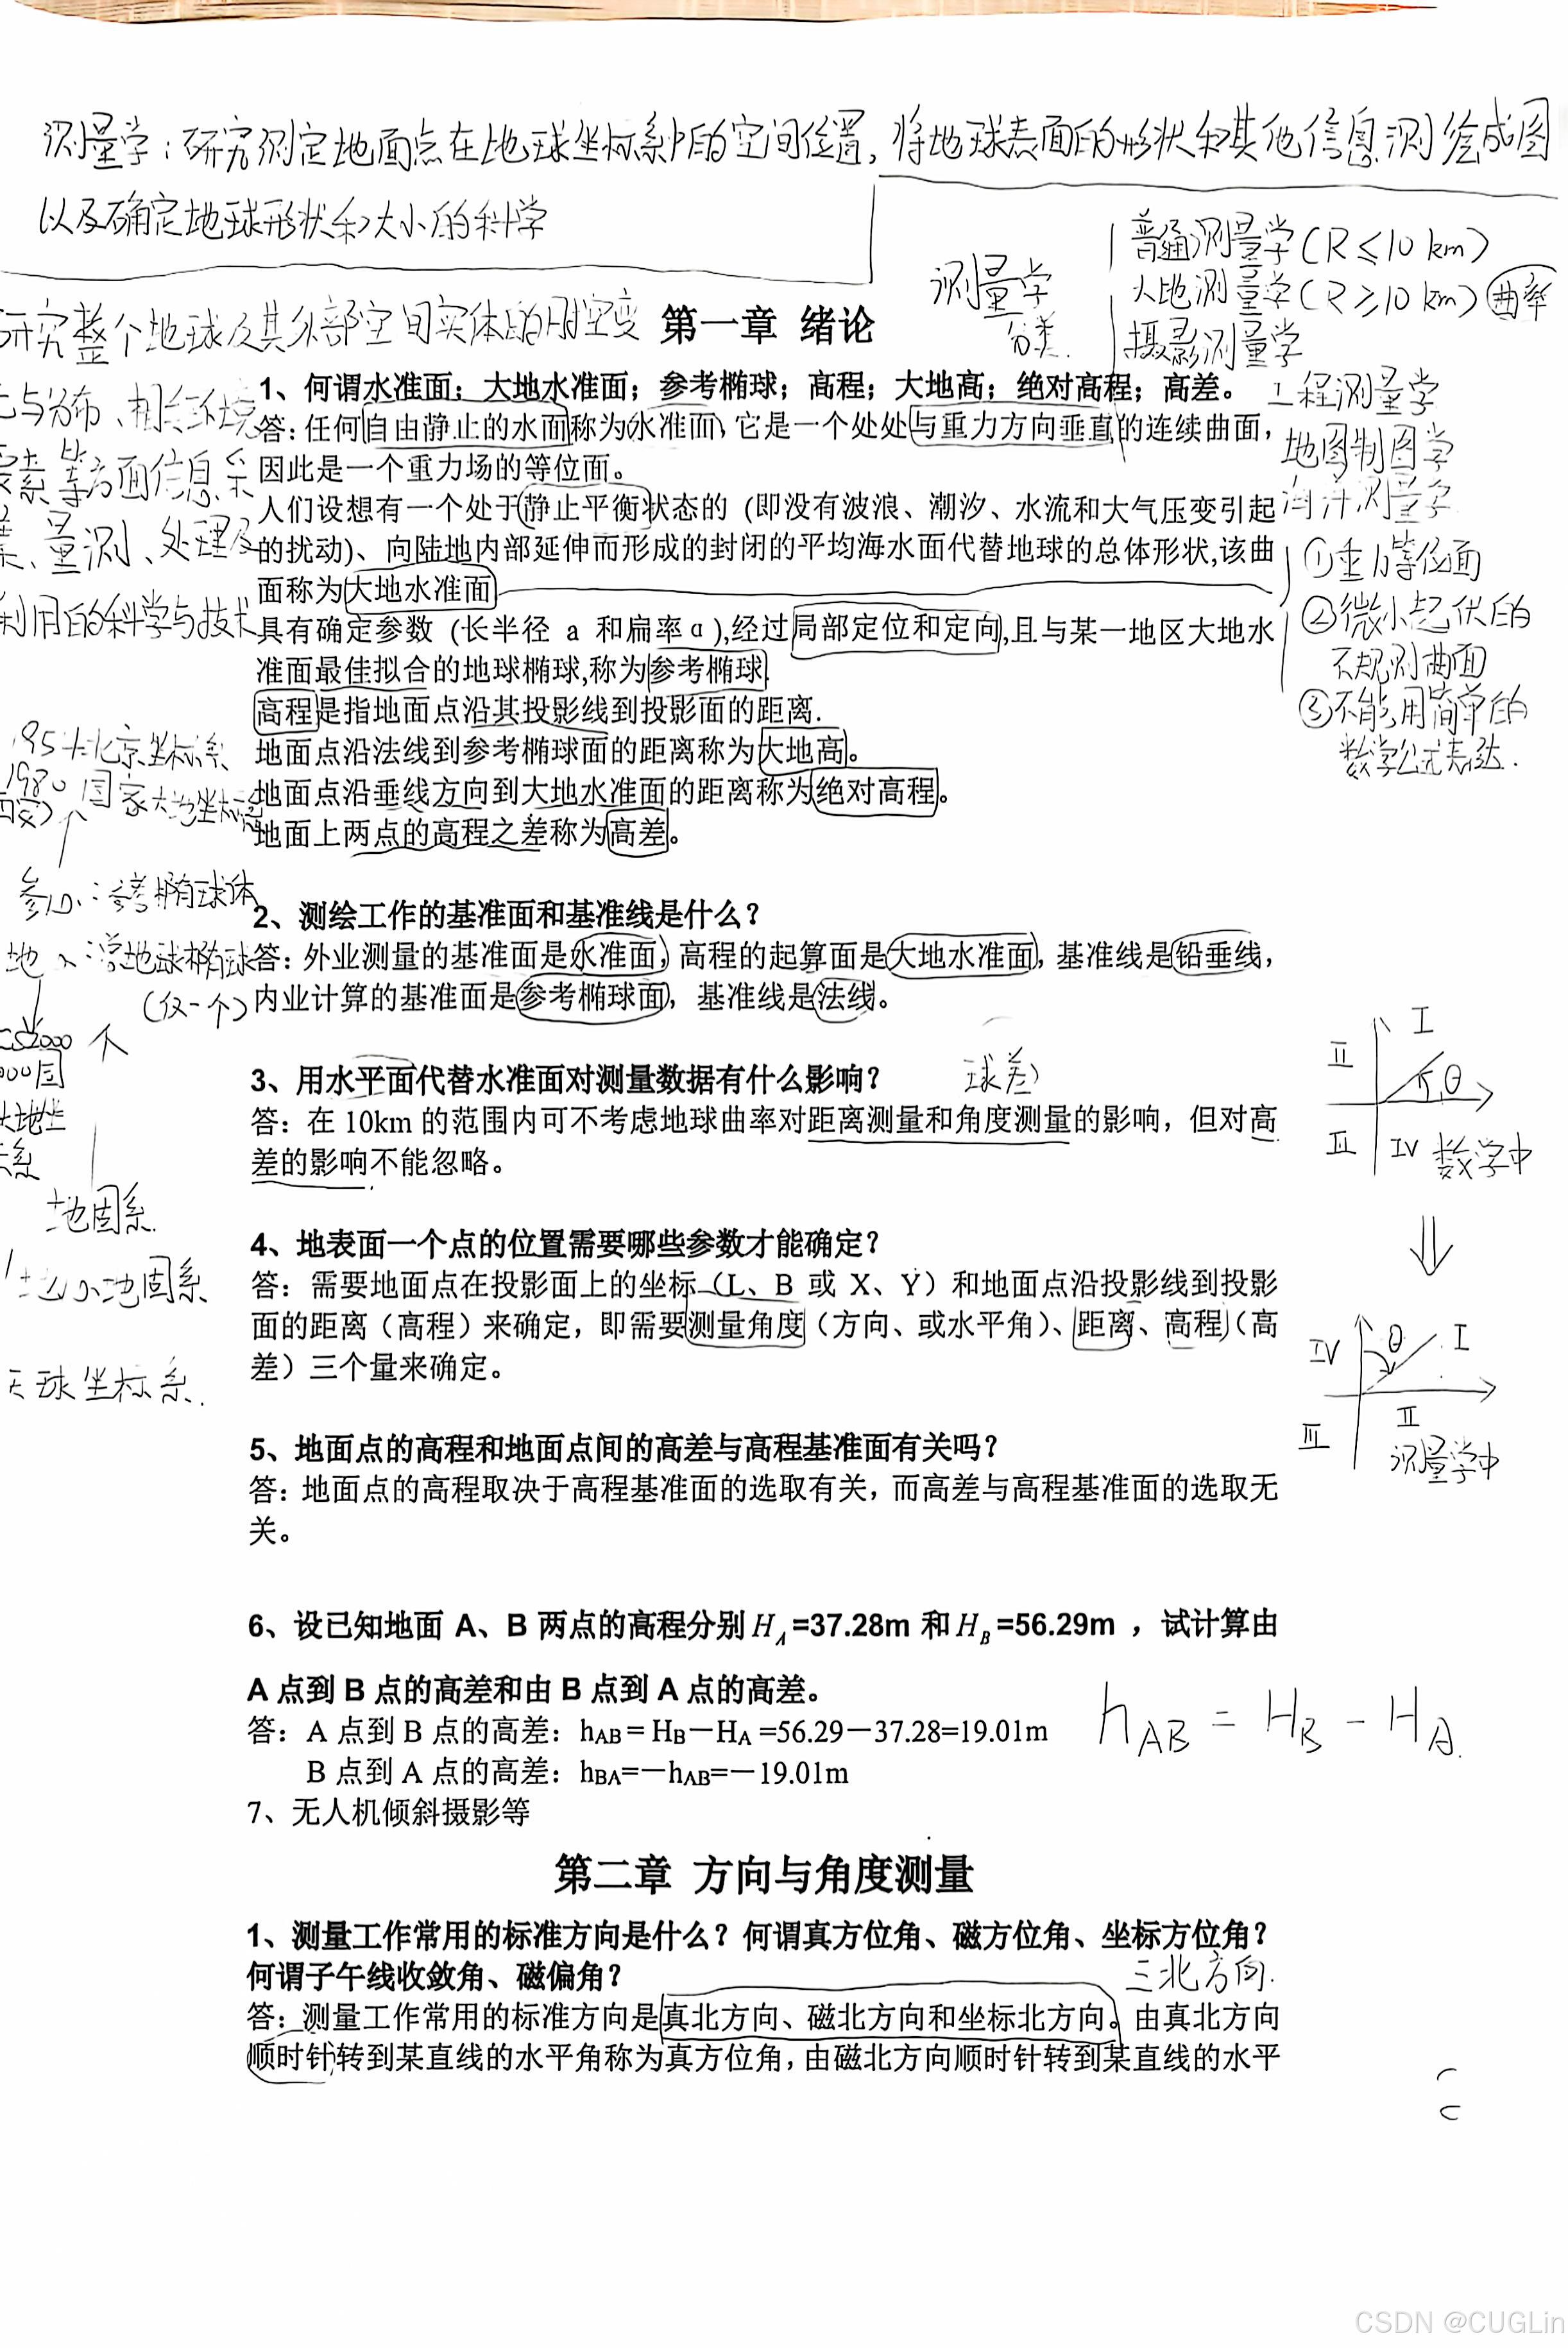 测量学：研究测定地面点在地球坐标系中的空间位置，将地球表面的形状和其他信息测绘成图
以及确定地球形状和大小的科学
测量学
分类
普通测量学(R≤10 km)
大地测量学(R≥10 km) 曲率
摄影测量学
工程测量学
地图制图学
海洋测量学
研究整个地球及其外部空间实体的时空变
化与分布、相关环境
要素等方面信息采
集、量测、处理及
利用的科学与技术
第一章 绪论
1、何谓水准面；大地水准面；参考椭球；高程；大地高；绝对高程；高差。
答：任何自由静止的水面称为水准面，它是一个处处与重力方向垂直的连续曲面，
因此是一个重力场的等位面。
人们设想有一个处于静止平衡状态的 (即没有波浪、潮汐、水流和大气压变引起
的扰动)、向陆地内部延伸而形成的封闭的平均海水面代替地球的总体形状,该曲
面称为大地水准面
具有确定参数 (长半径 a 和扁率α),经过局部定位和定向,且与某一地区大地水
准面最佳拟合的地球椭球,称为参考椭球.
高程是指地面点沿其投影线到投影面的距离.
地面点沿法线到参考椭球面的距离称为大地高。
地面点沿垂线方向到大地水准面的距离称为绝对高程。
地面上两点的高程之差称为高差。
①重力等位面
②微小起伏的
不规则曲面
③不能用简单的
数学公式表达.
1954北京坐标系
1980国家大地坐标系
参心：参考椭球体
地心：总地球椭球
(仅一个)
2、测绘工作的基准面和基准线是什么？
答：外业测量的基准面是水准面，高程的起算面是大地水准面，基准线是铅垂线，
内业计算的基准面是参考椭球面，基准线是法线。
3、用水平面代替水准面对测量数据有什么影响？
球差
答：在 10km 的范围内可不考虑地球曲率对距离测量和角度测量的影响，但对高
差的影响不能忽略。
地固系
地心地固系
天球坐标系.
I
II
θ
III
IV
数学中
4、地表面一个点的位置需要哪些参数才能确定？
答：需要地面点在投影面上的坐标（L、B 或 X、Y）和地面点沿投影线到投影
面的距离（高程）来确定，即需要测量角度（方向、或水平角）、距离、高程（高
差）三个量来确定。
IV
θ
I
III
II
测量学中
5、地面点的高程和地面点间的高差与高程基准面有关吗？
答：地面点的高程取决于高程基准面的选取有关，而高差与高程基准面的选取无
关。
6、设已知地面 A、B 两点的高程分别H_A=37.28m 和H_B=56.29m ，试计算由
A 点到 B 点的高差和由 B 点到 A 点的高差。
答：A 点到 B 点的高差：hAB = HB－HA =56.29－37.28=19.01m
B 点到 A 点的高差：hBA=－hAB=－19.01m
hAB = HB - HA.
7、无人机倾斜摄影等
第二章 方向与角度测量
1、测量工作常用的标准方向是什么？何谓真方位角、磁方位角、坐标方位角？
何谓子午线收敛角、磁偏角？
三北方向.
答：测量工作常用的标准方向是真北方向、磁北方向和坐标北方向。由真北方向
顺时针转到某直线的水平角称为真方位角，由磁北方向顺时针转到某直线的水平
CSDN @CUGLin